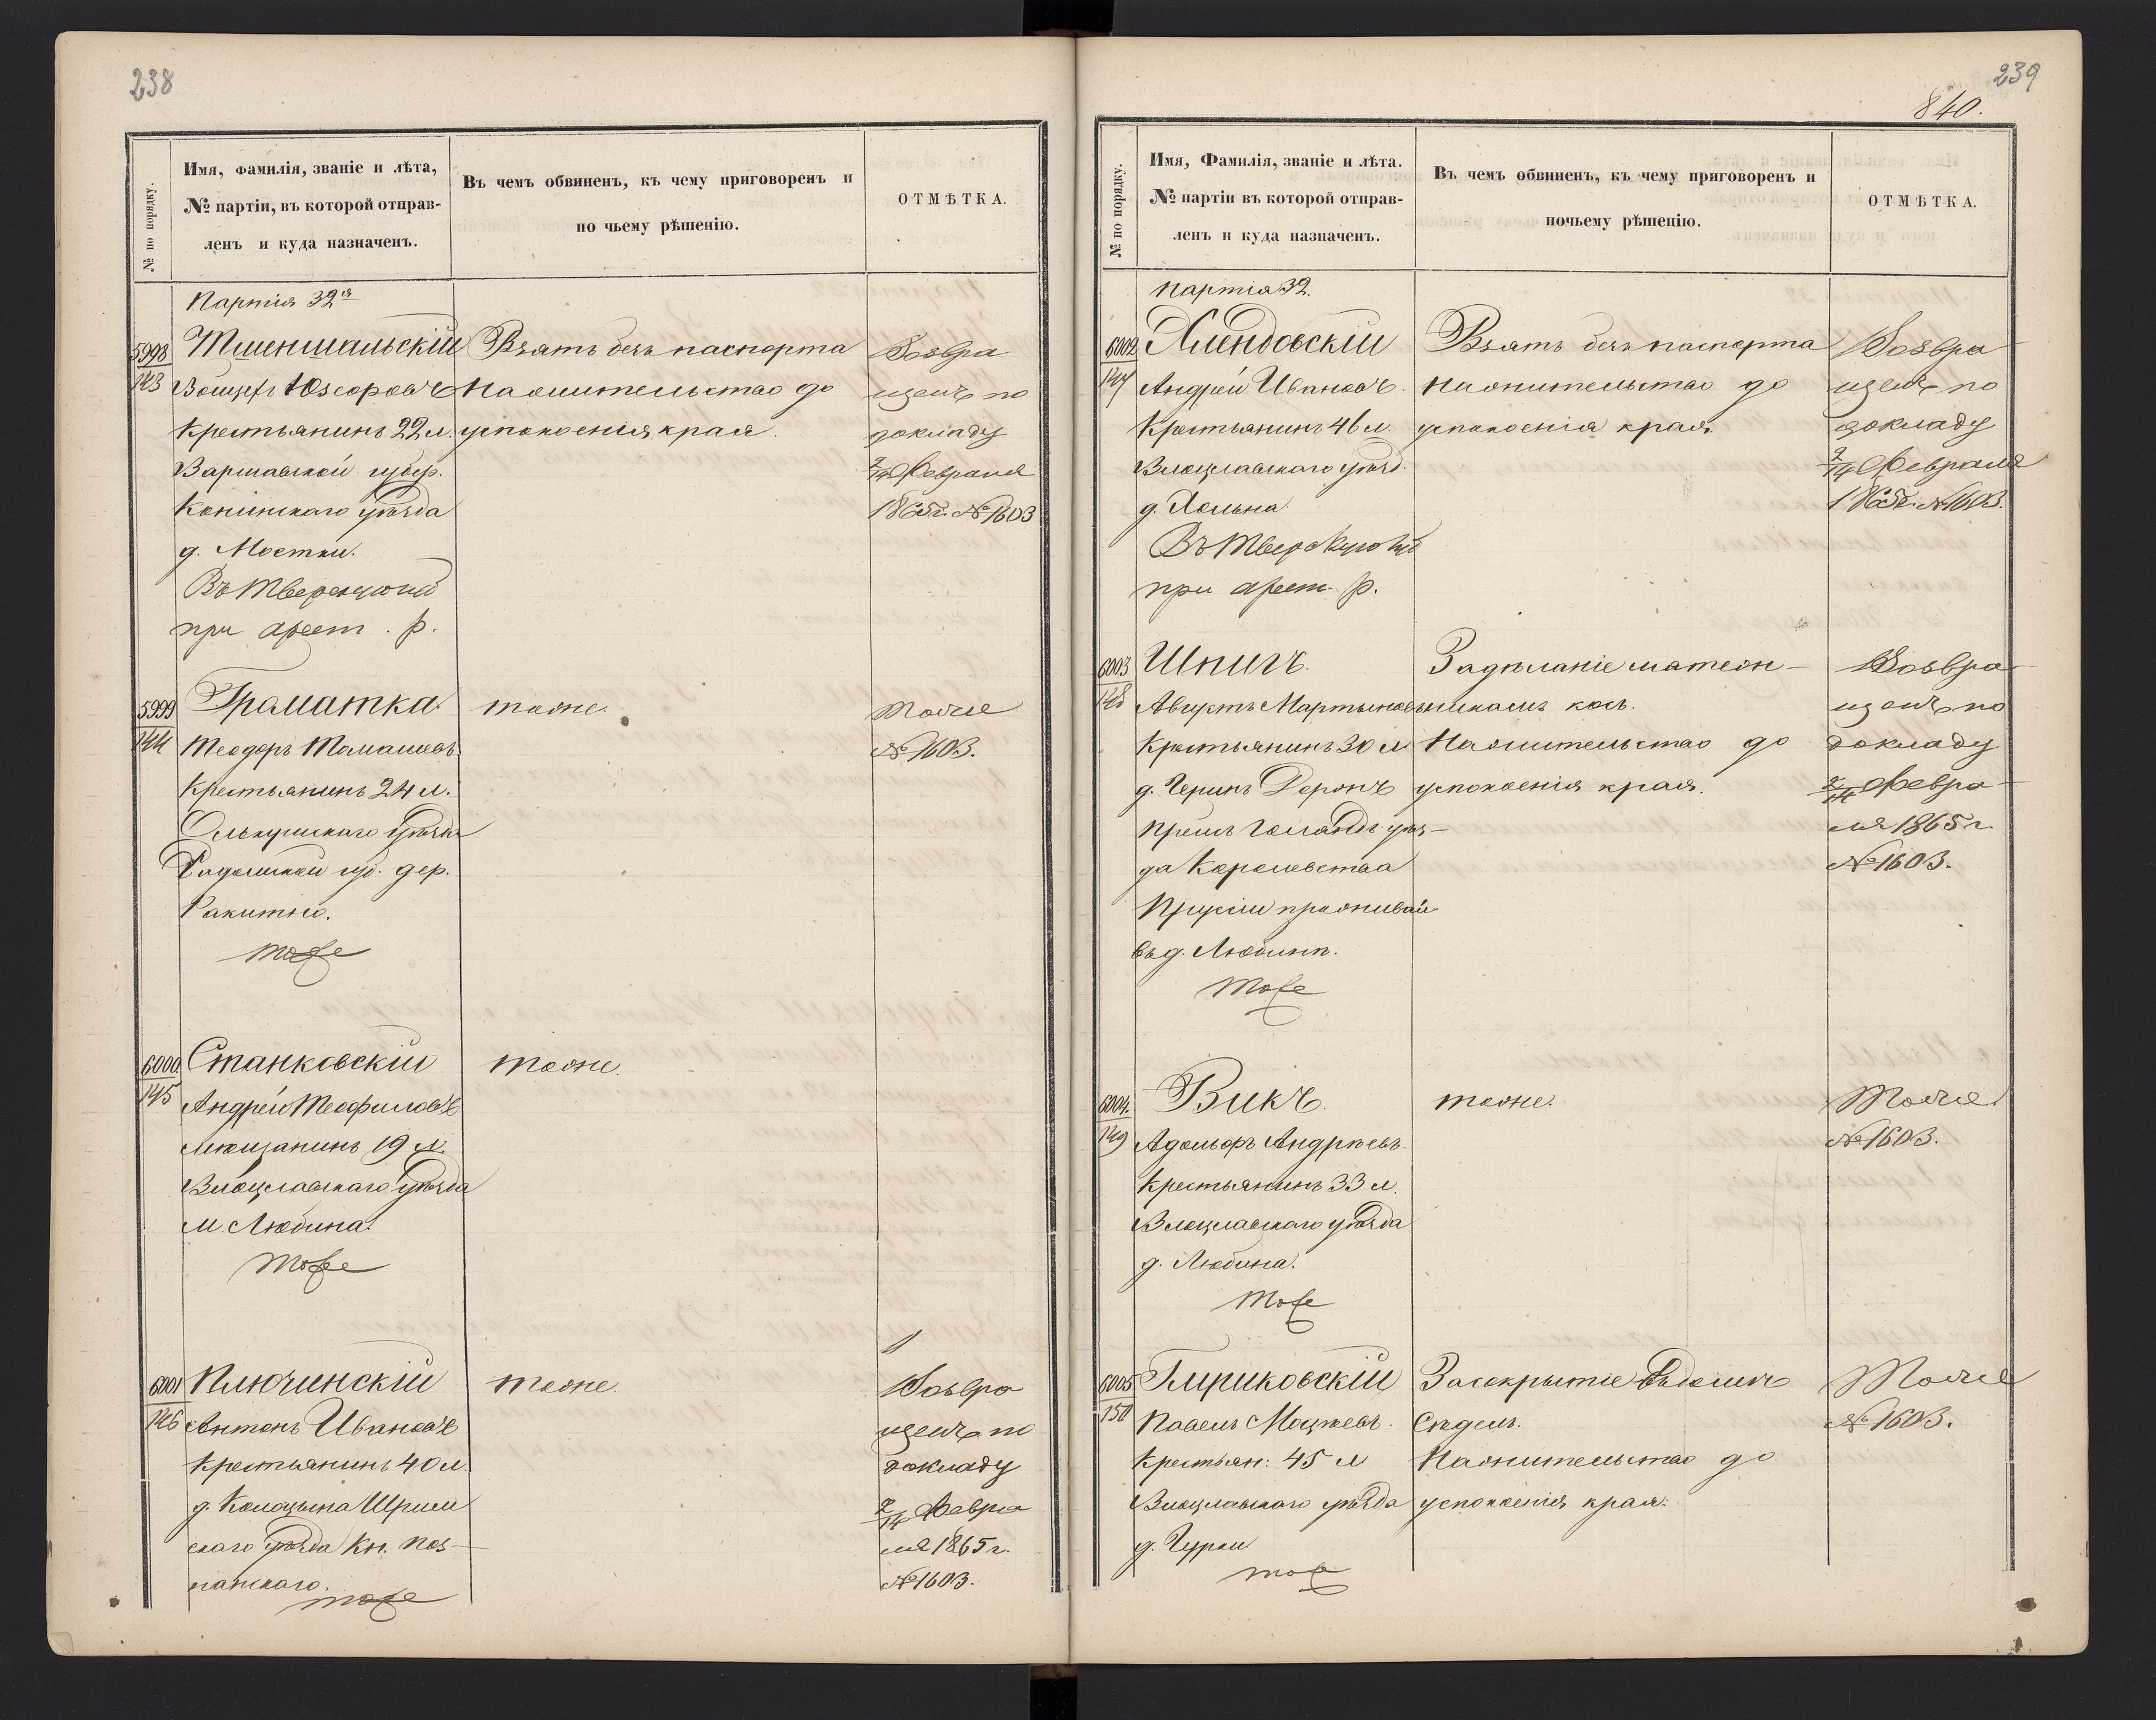 238
№ по порядку.
Имя, фамилія, званіе и лѣта,
№ партіи, въ которой отправ-
ленъ и куда назначенъ.
Въ чемъ обвиненъ, къ чему приговоренъ и
по чьему рѣшенію.
ОТМѢТКА.
Партія 32я
5998
143
Взятъ безъ паспорта
На жительство до
успокоенія края.
Крестьянинъ 22 л.
Варшавской губер.
Конинскаго уѣзда
д. Мостки.
Въ Тверскую губ
при арест. р.
Возвра
щенъ по
докладу
2/14 Февраля
1865г. № 1603
5999
144
Граматка
Теодоръ Томашевъ.
Крестьянинъ 24 л.
Олькушскаго уѣзда
Радомской губ. дер.
Ракитно.
тоже
тоже.
Тоже
№ 1603.
6000
145
Станковскій
Андрей Теофиловъ
мѣщанинъ 19 л.
Влоцлавскаго уѣзда
м. Любина.
тоже
тоже.
6001
146
Плючинскій
Антонъ Ивановъ
Крестьянинъ 40 л.
скаго уѣзда Кн. Поз-
нанскаго.
тоже
тоже.
Возвра
щенъ по
докладу
2/14 Февра
ля 1865 г.
№ 1603.
239
840.
№ по порядку.
Имя, Фамилія, званіе и лѣта.
№ партіи въ которой отправ-
ленъ и куда назначенъ.
Въ чемъ обвиненъ, къ чему приговоренъ и
почьему рѣшенію.
ОТМѢТКА.
партія 32.
6002
147
Хлендовскій
Андрей Ивановъ.
Крестьянинъ 46 л.
Влоцлавскаго уѣзд.
Въ Тверскую губ
при арест. р.
Взятъ безъ паспорта
на жительство до
успокоенія края.
Возвра
щенъ по
докладу
2/14 Февраля
1865г. № 1603.
6003
148
Шпигъ.
Августъ Мартыновъ
Крестьянинъ 30 л.
да Королевства
Пруссіи прожива
въ д. Любинѣ.
тоже
На жительство до
успокоенія края.
Возвра
щенъ по
докладу
2/14 Февра-
ля 1865 г.
№ 1603.
6004.
149
Викъ.
Адольфъ Андреевъ.
Крестьянинъ 33 л.
Влоцлавскаго уѣзда
д. Любина.
тоже
тоже.
Тоже
№ 1603.
6005
150
Крестьян: 45 л
Влоцлавскаго уѣзда
тоже
На жительство до
успокоенія края.
Тоже
№ 1603.